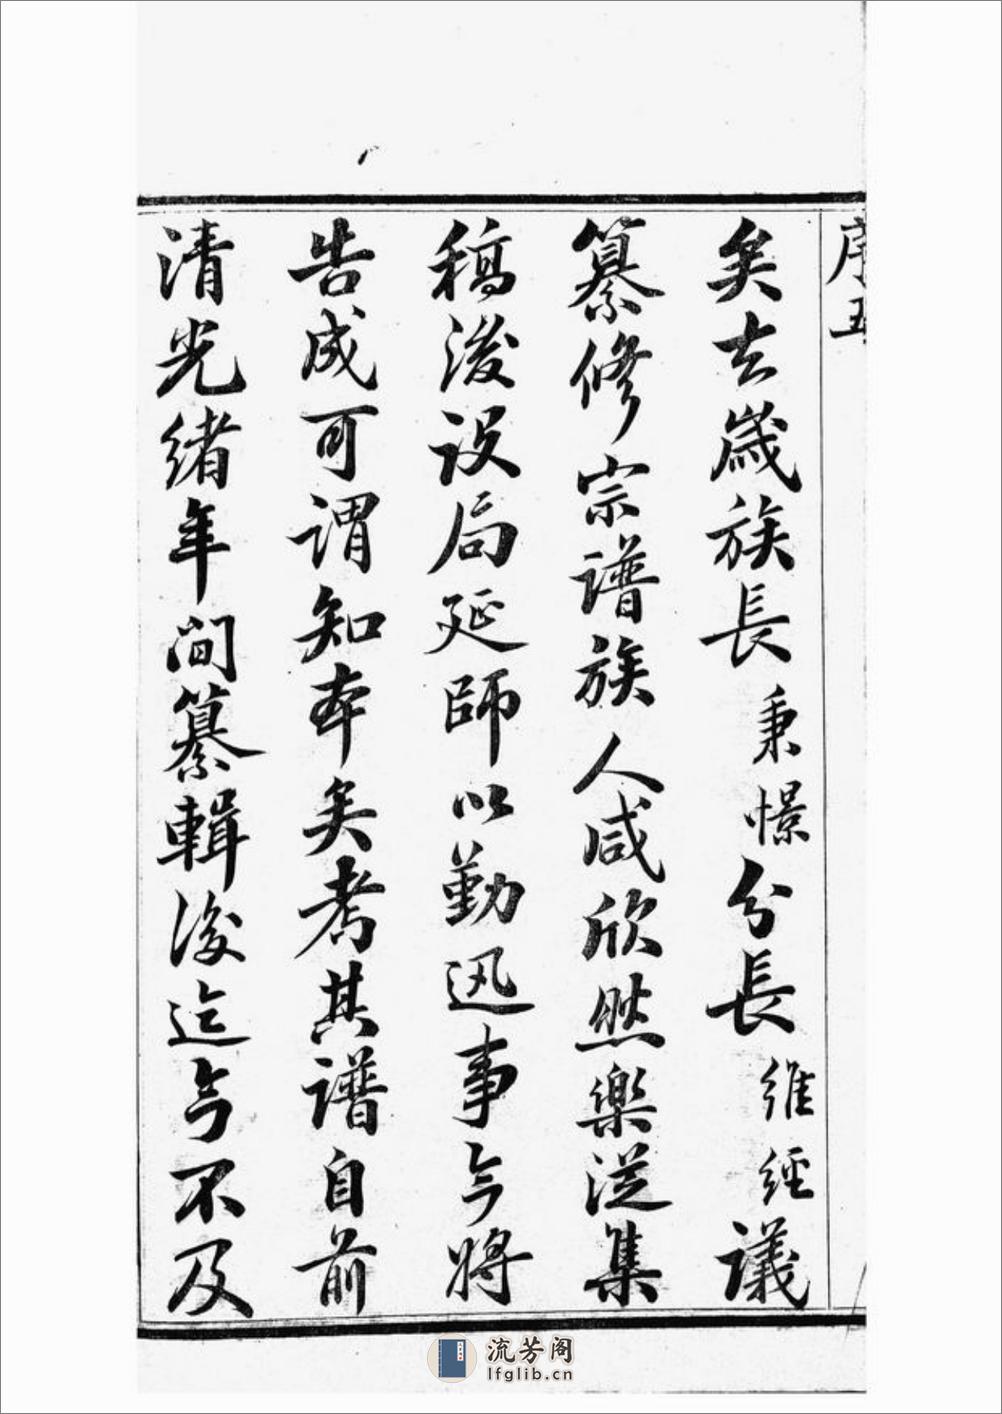 序五
矣去歲族長秉憬分長維經議
纂修宗譜族人咸欣然樂從集
稿後設局延師以勤迅事今將
告成可謂知本矣考其譜自前
清光緒年间纂輯後迄今不及
流芳阁
lfglib.cn